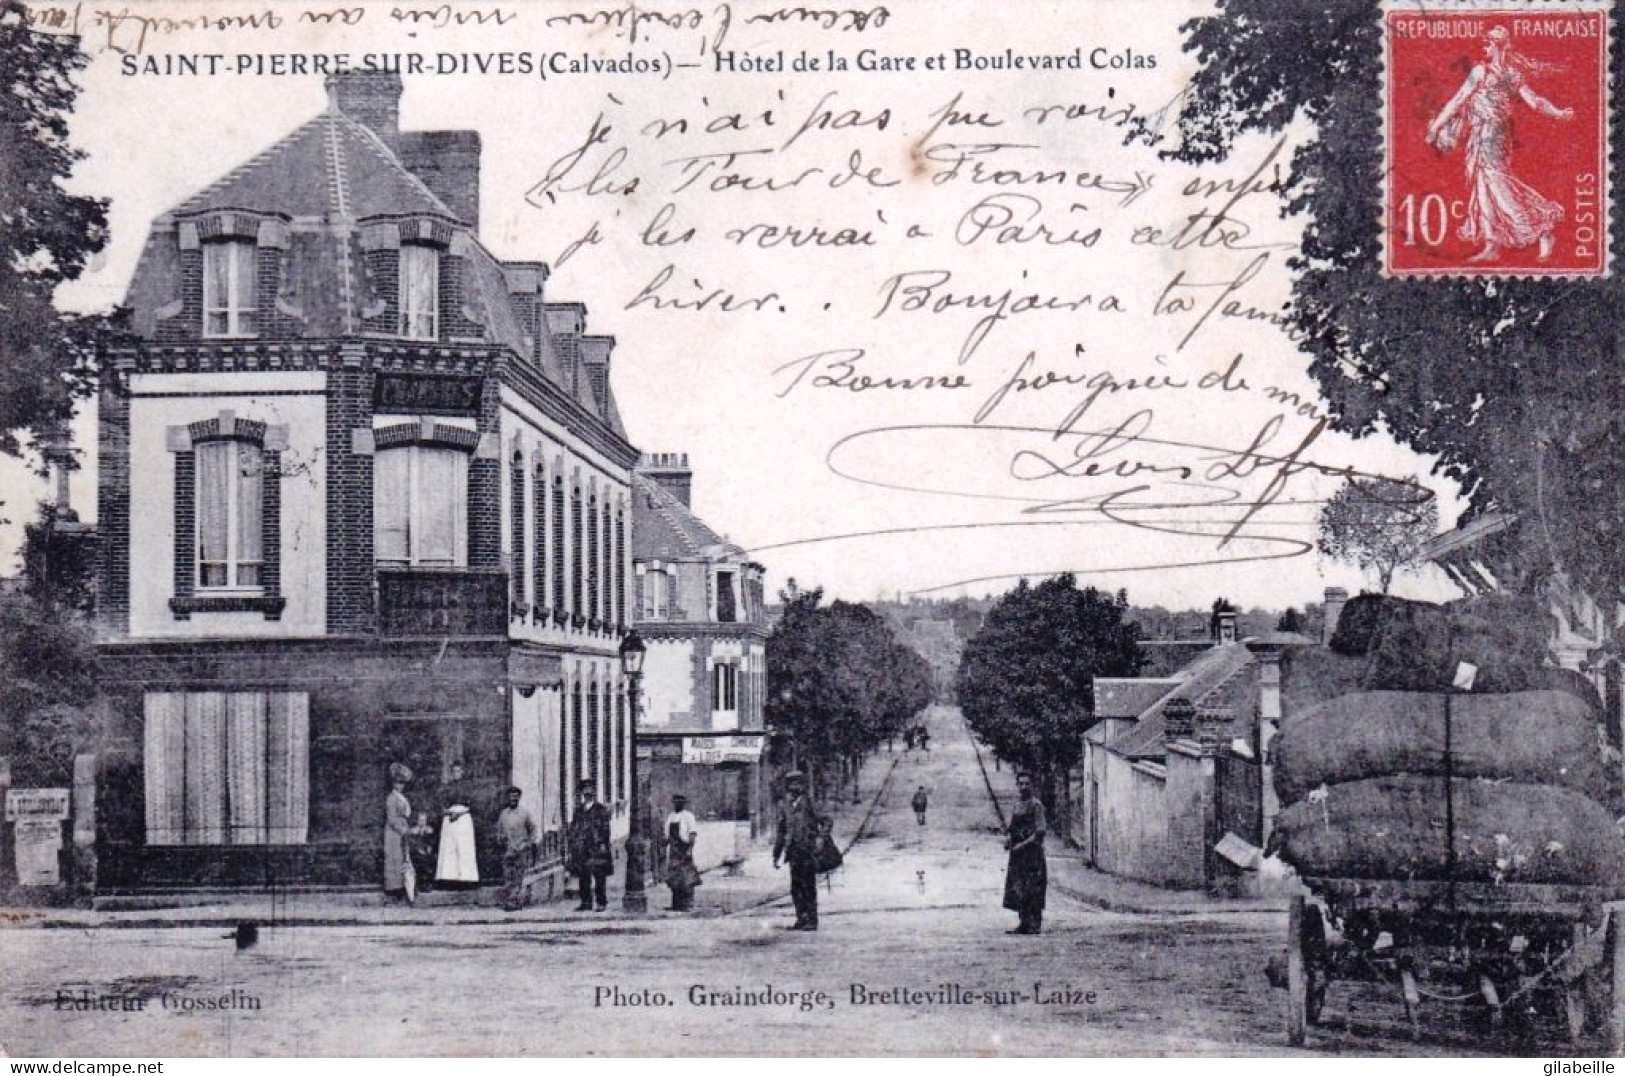 excuse l'écriture mais au moment
SAINT-PIERRE-SUR-DIVES (Calvados) — Hôtel de la Gare et Boulevard Colas
RÉPUBLIQUE FRANÇAISE
10c
POSTES
je n'ai pas pu voir
"les Tour de France" enfin
je les verrai a Paris cette
hiver. . Bonjour a ta famille
Bonne poignée de main
Editeur Gosselin
Photo. Graindorge, Bretteville-sur-Laize
gilabeille